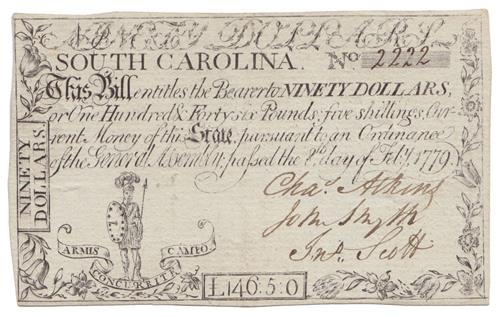 NINETY DOLLARS
SOUTH CAROLINA. No 2222
This Bill entitles the Bearer to NINETY DOLLARS,
or One Hundred & Forty six Pounds, five shillings, Cur
rent Money of this State, pursuant to an Ordinance
of the General Assembly, passed the 8th day of Feby. 1779.
NINETY
DOLLARS.
Chas. Atkins
John Smyth
Jno. Scott
ARMIS CAMPO
CONCURRITE
£146:5:0